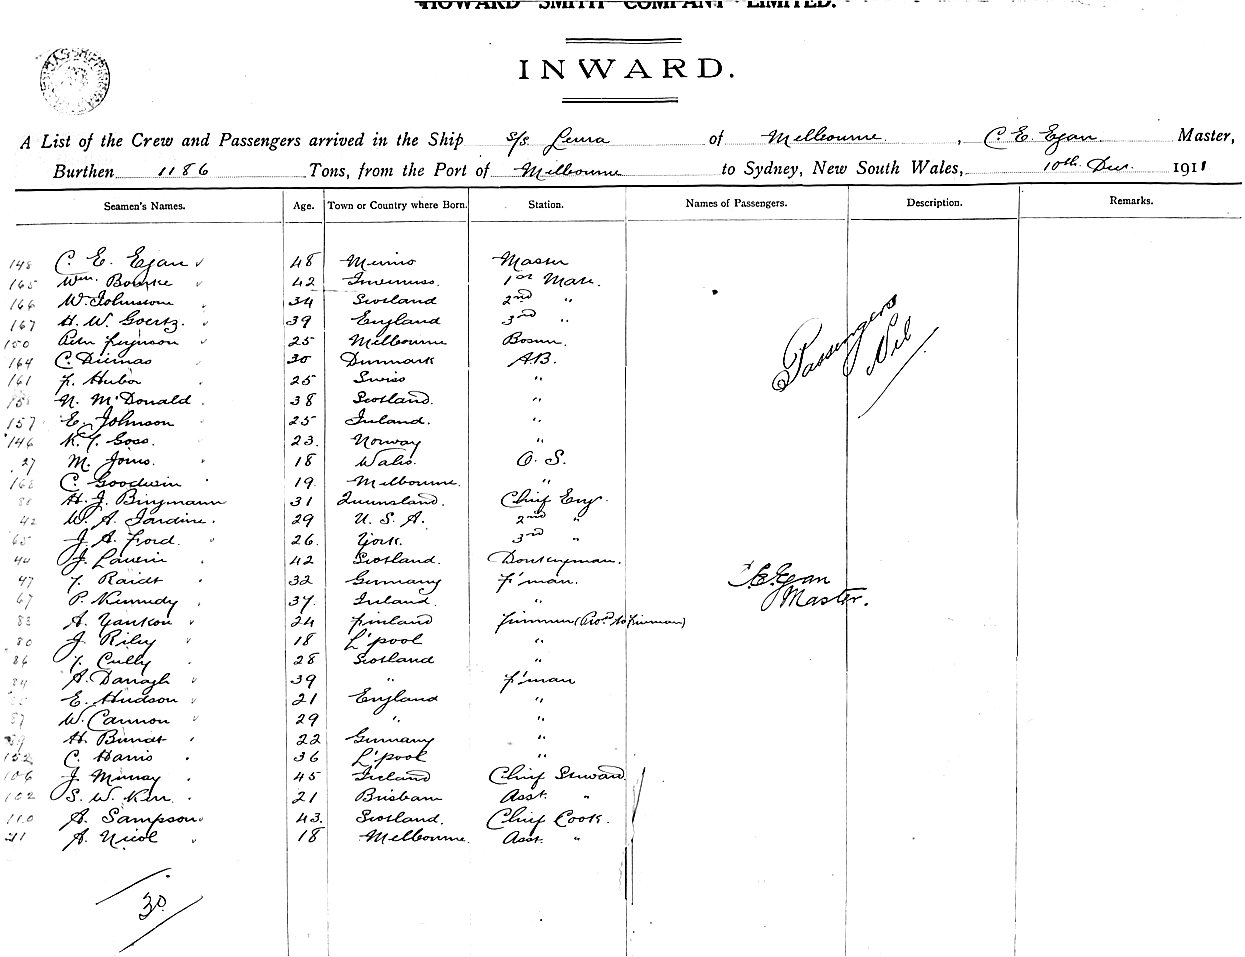 HOWARD SMITH COMPANY LIMITED.
INWARD.
A List of the Crew and Passengers arrived in the Ship s/s Leura of Melbourne, C. E. Egan Master,
Burthen 1186 Tons, from the Port of Melbourne to Sydney, New South Wales, 10th Dec. 1911
Seamen's Names. Age. Town or Country where Born. Station. Names of Passengers. Description. Remarks.
148 C. E. Egan 48 Master
165 Wm. Bourke 42 Inverness. 1st Mate.
166 W. Johnstone 34 Scotland 2nd "
167 H. W. Goertz. 39 England 3rd "
150 Peter Ferguson 25 Melbourne Bosun.
164 C. 30 Denmark A.B.
161 F. Huber 25 Swiss "
N. McDonald 38 Scotland. "
157 E. Johnson 25 Ireland. "
146 K. F. Goss. 23. Norway "
27 M. Jones. 18 Wales. O. S.
C. Goodwin 19. Melbourne. "
H. J. Bingmann 31 Queensland. Chief Eng.
42 W. A. Jardine. 29 U. S. A. 2nd "
65 J. A. Ford. 26. York. 3rd "
40 J. 42 Scotland. Donkeyman.
47 F. Raidt 32 Germany F'man.
67 P. Kennedy 37. Ireland. "
88 A. 24 Finland Trimmer (Pro. to Fireman)
80 J. Riley 18 L'pool "
86 F. Cully 28 Scotland "
84 A. Darragh 39 " F'man
E. Hudson 21 England "
87 W. Cannon 29 " "
H. Bundt 22 Germany "
152 C. Harris 36 L'pool "
106 J. Murray 45 Ireland Chief Steward
102 S. W. Kerr. 21 Brisbane Asst. "
110 A. Sampson 43. Scotland. Chief Cook.
A. Nicol 18 Melbourne. Asst. "
30
Passengers
Nil
C. E. Egan
Master.